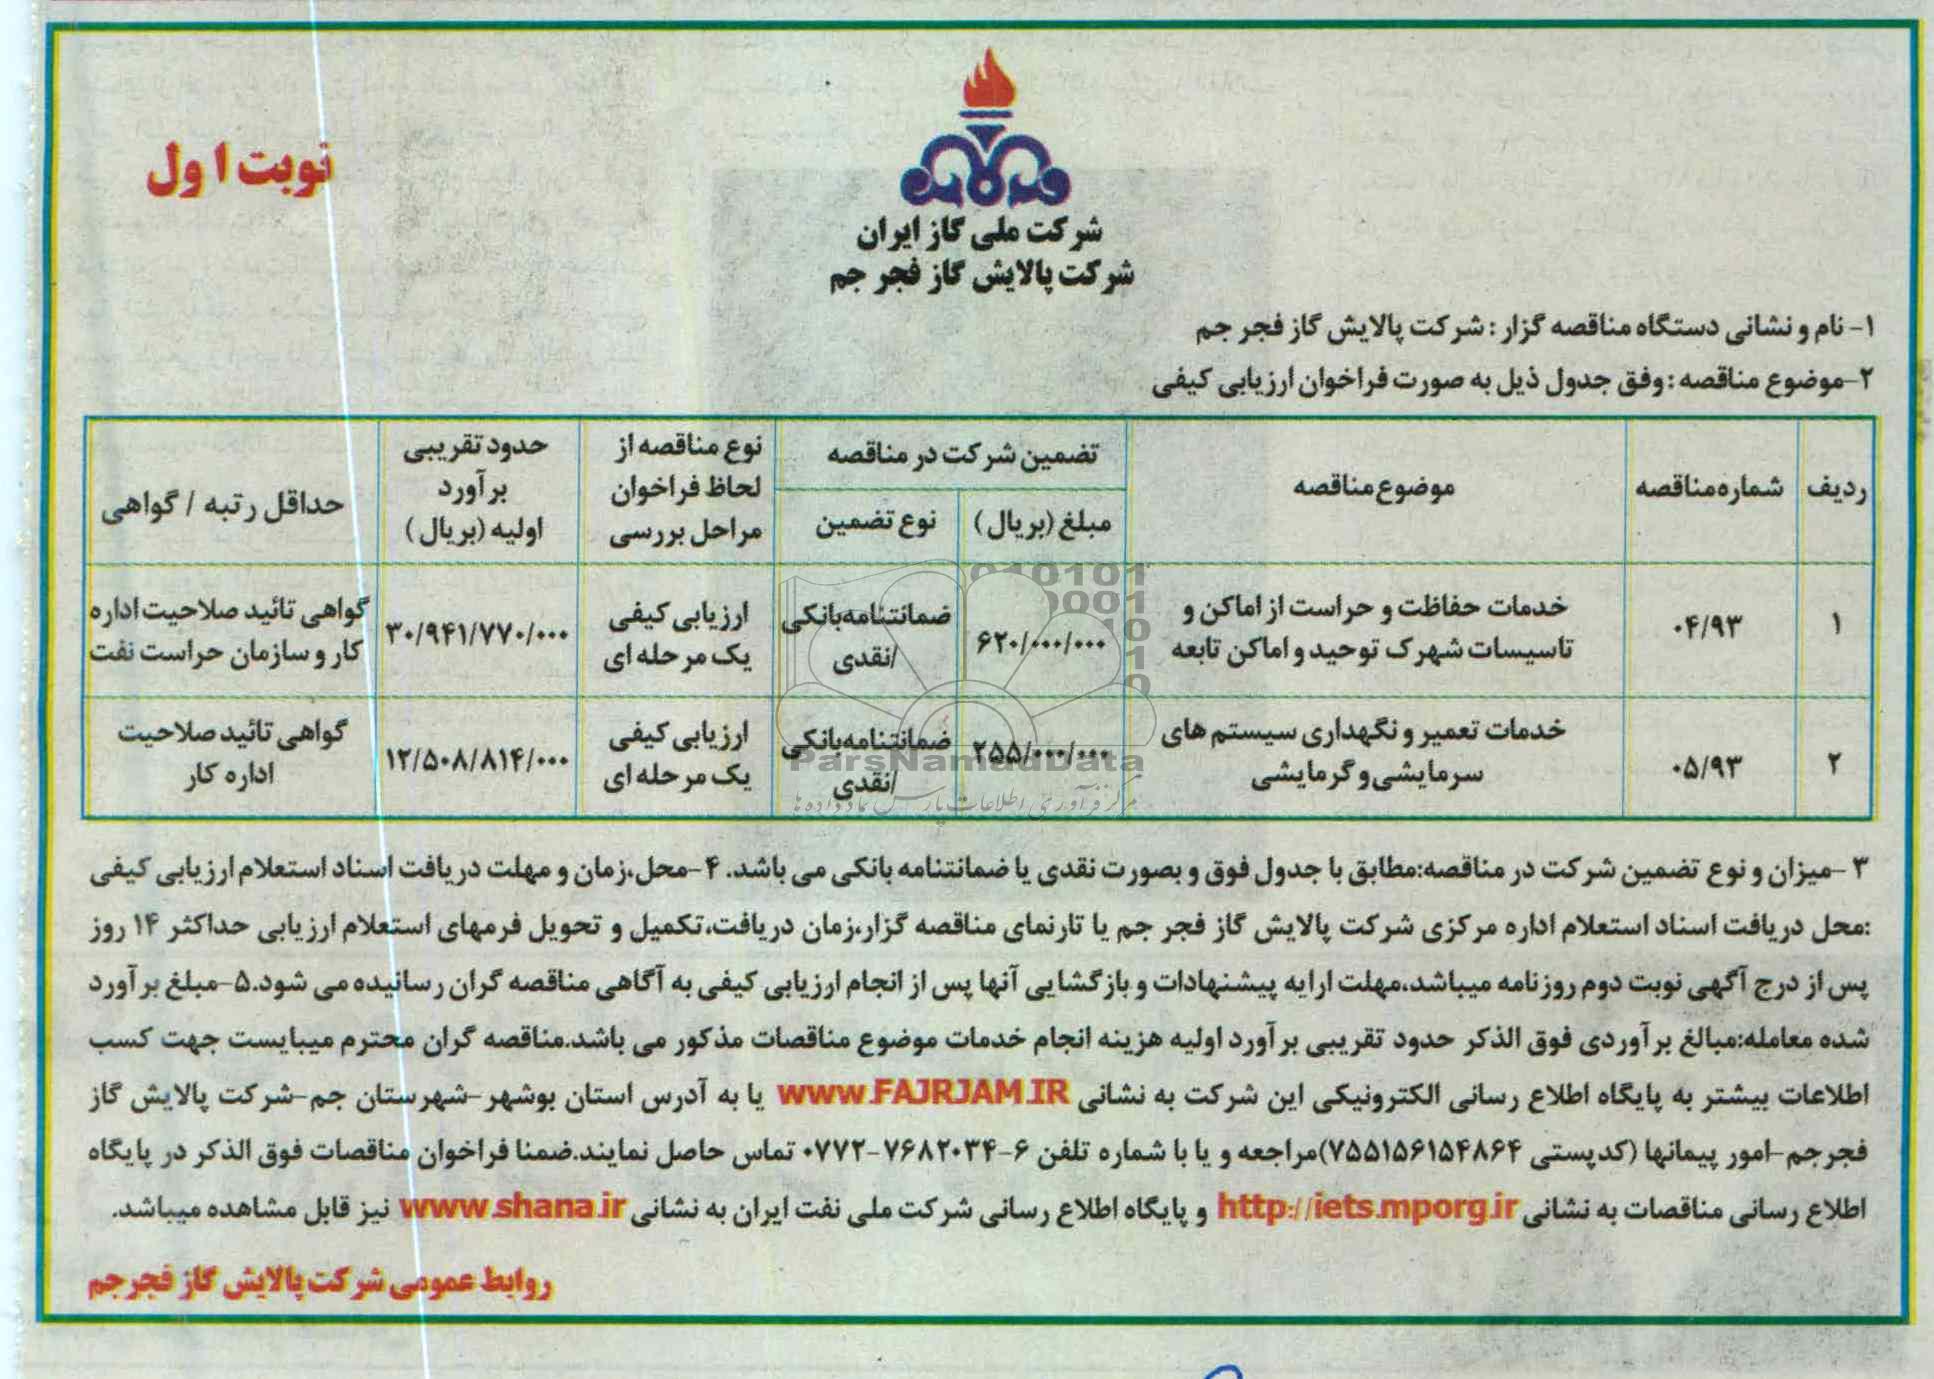 نوبت اول
شرکت ملی گاز ایران
شرکت پالایش گاز فجر جم
۱- نام و نشانی دستگاه مناقصه گزار : شرکت پالایش گاز فجر جم
۲-موضوع مناقصه : وفق جدول ذیل به صورت فراخوان ارزیابی کیفی
ردیف شماره مناقصه موضوع مناقصه تضمین شرکت در مناقصه نوع مناقصه از لحاظ فراخوان مراحل بررسی حدود تقریبی برآورد اولیه (بریال) حداقل رتبه / گواهی
مبلغ (بریال) نوع تضمین
۱ ۰۴/۹۳ خدمات حفاظت و حراست از اماکن و تاسیسات شهرک توحید و اماکن تابعه ۶۲۰/۰۰۰/۰۰۰ ضمانتنامه بانکی /نقدی ارزیابی کیفی یک مرحله ای ۳۰/۹۴۱/۷۷۰/۰۰۰ گواهی تائید صلاحیت اداره کار و سازمان حراست نفت
۲ ۰۵/۹۳ خدمات تعمیر و نگهداری سیستم های سرمایشی و گرمایشی ۲۵۵/۰۰۰/۰۰۰ ضمانتنامه بانکی /نقدی ارزیابی کیفی یک مرحله ای ۱۲/۵۰۸/۸۱۴/۰۰۰ گواهی تائید صلاحیت اداره کار
ParsNamadData
مرکز فرآوری اطلاعات پارس نماد داده ها
۳ -میزان و نوع تضمین شرکت در مناقصه:مطابق با جدول فوق و بصورت نقدی یا ضمانتنامه بانکی می باشد. ۴-محل،زمان و مهلت دریافت اسناد استعلام ارزیابی کیفی
:محل دریافت اسناد استعلام اداره مرکزی شرکت پالایش گاز فجر جم یا تارنمای مناقصه گزار،زمان دریافت،تکمیل و تحویل فرمهای استعلام ارزیابی حداکثر ۱۴ روز
پس از درج آگهی نوبت دوم روزنامه میباشد،مهلت ارایه پیشنهادات و بازگشایی آنها پس از انجام ارزیابی کیفی به آگاهی مناقصه گران رسانیده می شود.۵-مبلغ برآورد
شده معامله:مبالغ برآوردی فوق الذکر حدود تقریبی برآورد اولیه هزینه انجام خدمات موضوع مناقصات مذکور می باشد.مناقصه گران محترم میبایست جهت کسب
اطلاعات بیشتر به پایگاه اطلاع رسانی الکترونیکی این شرکت به نشانی www.FAJRJAM.IR یا به آدرس استان بوشهر-شهرستان جم-شرکت پالایش گاز
فجرجم-امور پیمانها (کدپستی ۷۵۵۱۵۶۱۵۴۸۶۴)مراجعه و یا با شماره تلفن ۶-۷۶۸۲۰۳۴-۰۷۷۲ تماس حاصل نمایند.ضمنا فراخوان مناقصات فوق الذکر در پایگاه
اطلاع رسانی مناقصات به نشانی http://iets.mporg.ir و پایگاه اطلاع رسانی شرکت ملی نفت ایران به نشانی www.shana.ir نیز قابل مشاهده میباشد.
روابط عمومی شرکت پالایش گاز فجرجم